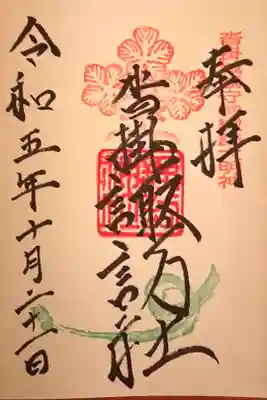 奉拝
沓掛諏訪社
令和五年十月二十一日